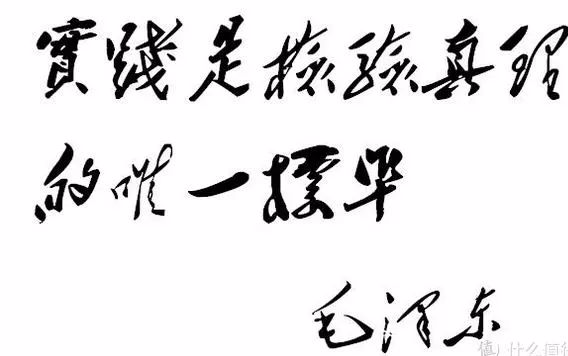 實踐是檢驗真理
的唯一標準
毛澤东
值 什么值得